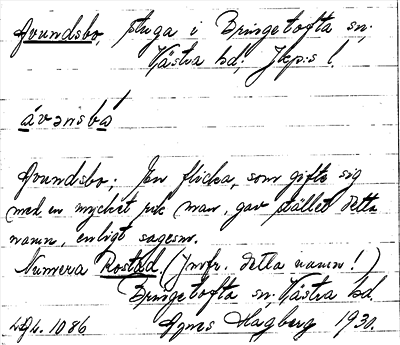 Avundsbo, stuga i Bringetofta sn;
Västra hd; Jkp:s l.
ávənsbá
Avundsbo; En flicka, som gifte sig
med en mycket rik man, gav stället detta
namn, enligt sagesm.
Numera Rostad. (Jmfr. detta namn!)
Bringetofta sn. Västra hd.
1086
Agnes Hagberg 1930.